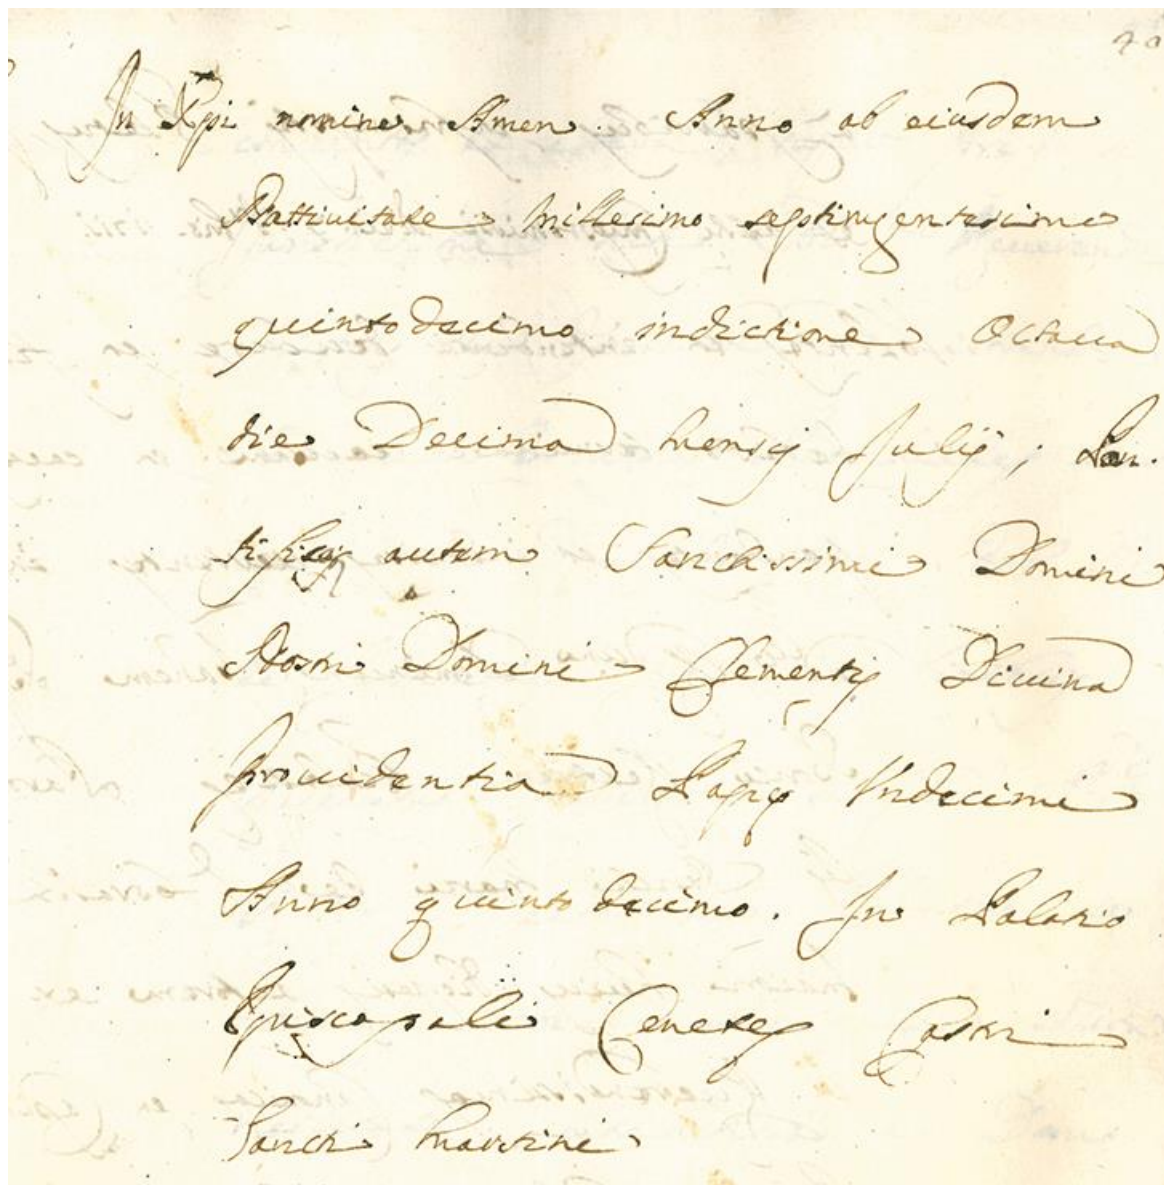 40
In Xpi nomine Amen. Anno ab eiusdem
Nattiuitate Millesimo septingentesimo
quintodecimo indictione Octaua
die Decima Mensis Julij; Pon.
tificatus autem Sanctissimi Domini
Nostri Domini Clementis Diuina
prouidentia Papę Vndecimi
Anno quinto decimo. In Palatio
Episcopali Cenetę Castri
Sancti Martini